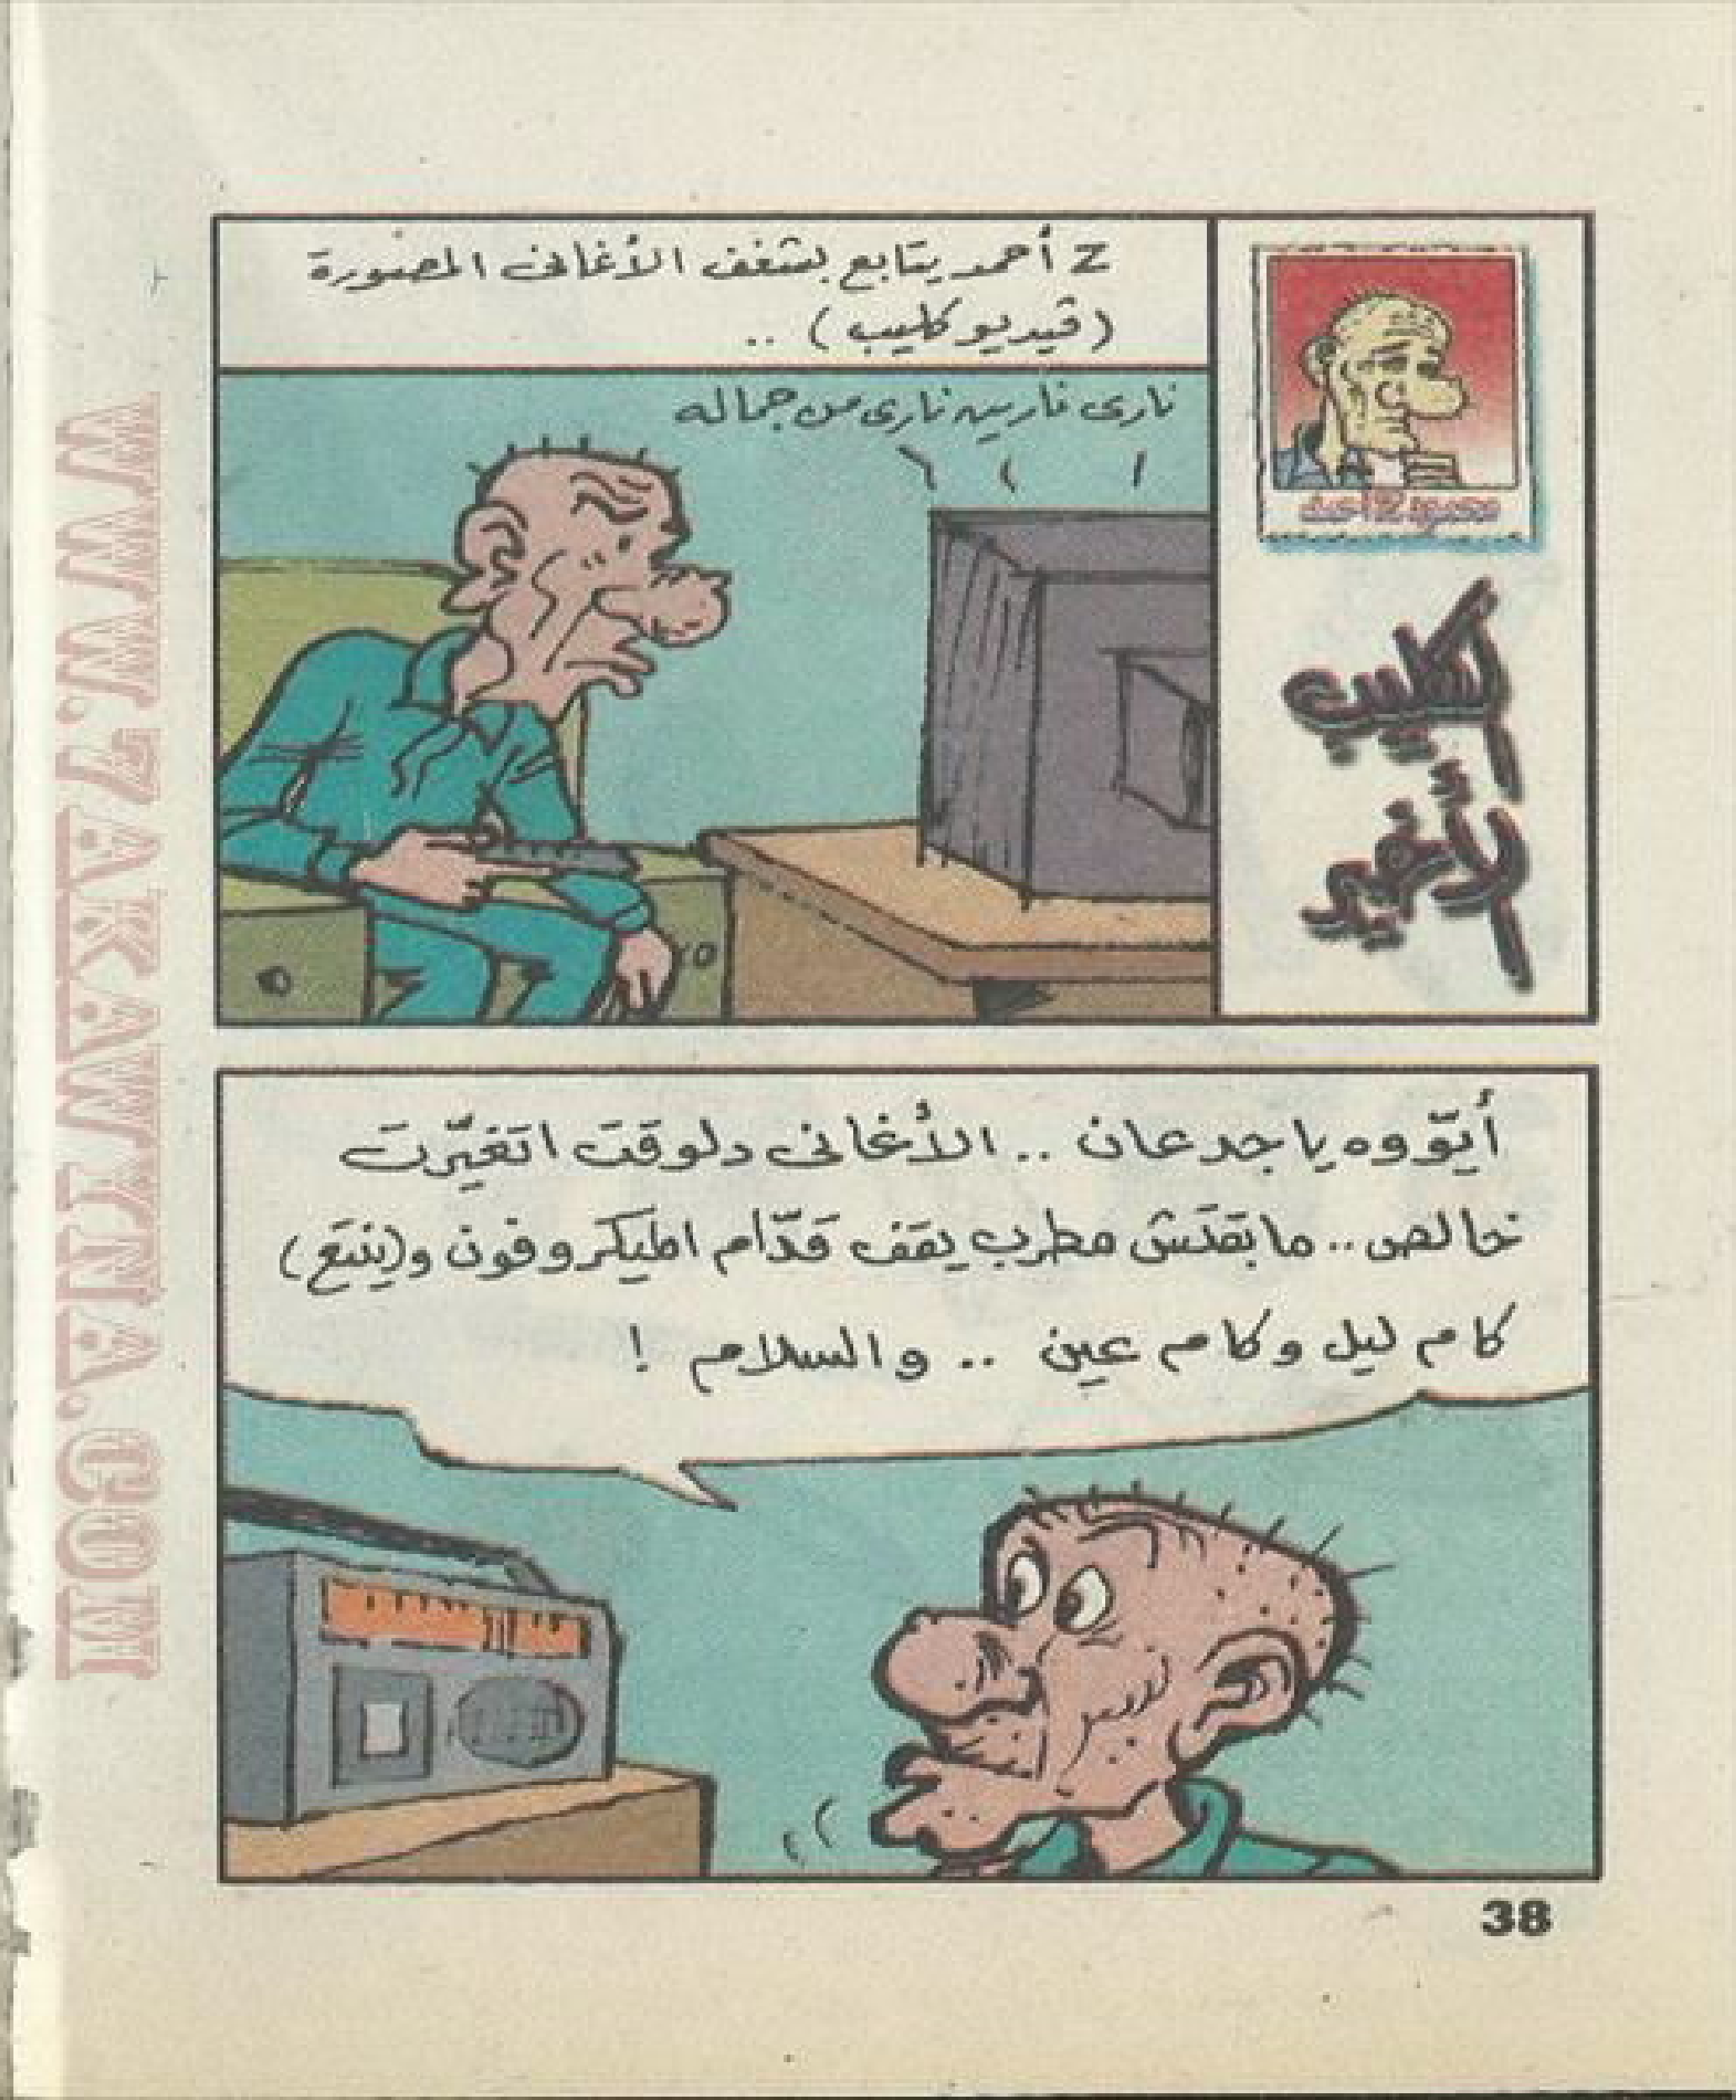 Z أحمد يتابع بشغف الأغانى المصورة
(ڤيديو كليب) ..
نارى نارين نارى من جماله
أيّووه يا جدعان .. الأغانى دلوقت اتغيّرت
خالص .. ما بقتش مطرب يقف قدّام الميكروفون و(ينتع)
كام ليل وكام عين .. والسلام !
38
WWW.7AKAWTNA.COM